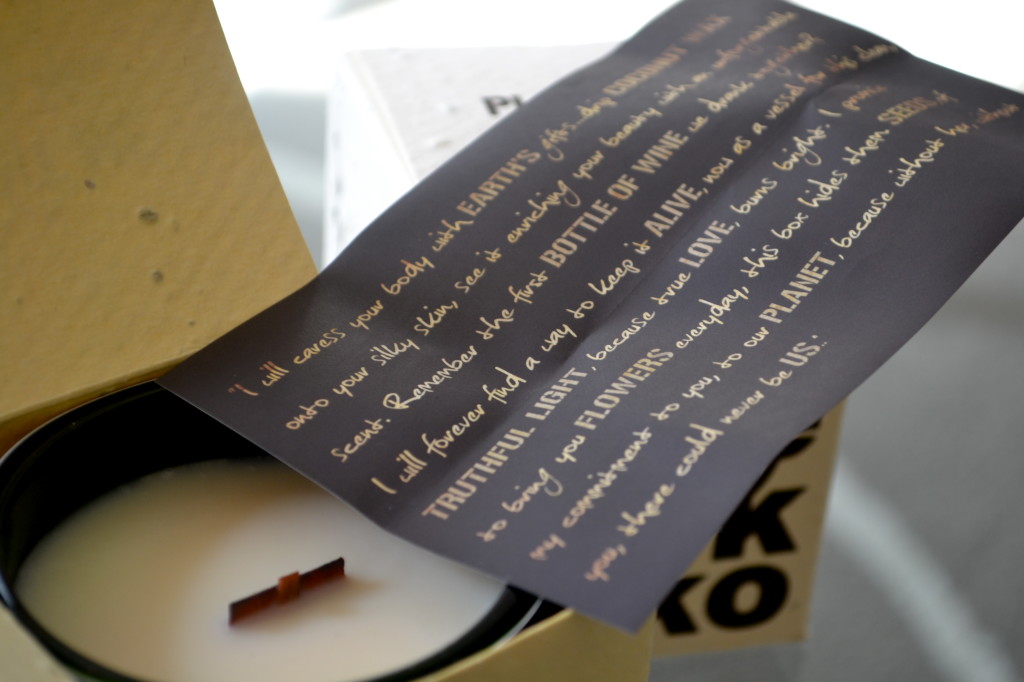 "I will caress your body with EARTH'S gifts...drip COCONUT WAX
onto your silky skin, see it enriching your beauty with an unforgettable
scent. Remember the first BOTTLE OF WINE we drank
I will forever find a way to keep it ALIVE, now as a vessel for this
TRUTHFUL LIGHT, because true LOVE, burns bright. I promise
to bring you FLOWERS everyday, this box hides them SEEDS of
my commitment to you, to our PLANET, because without her, without
you, there could never be US."
KO